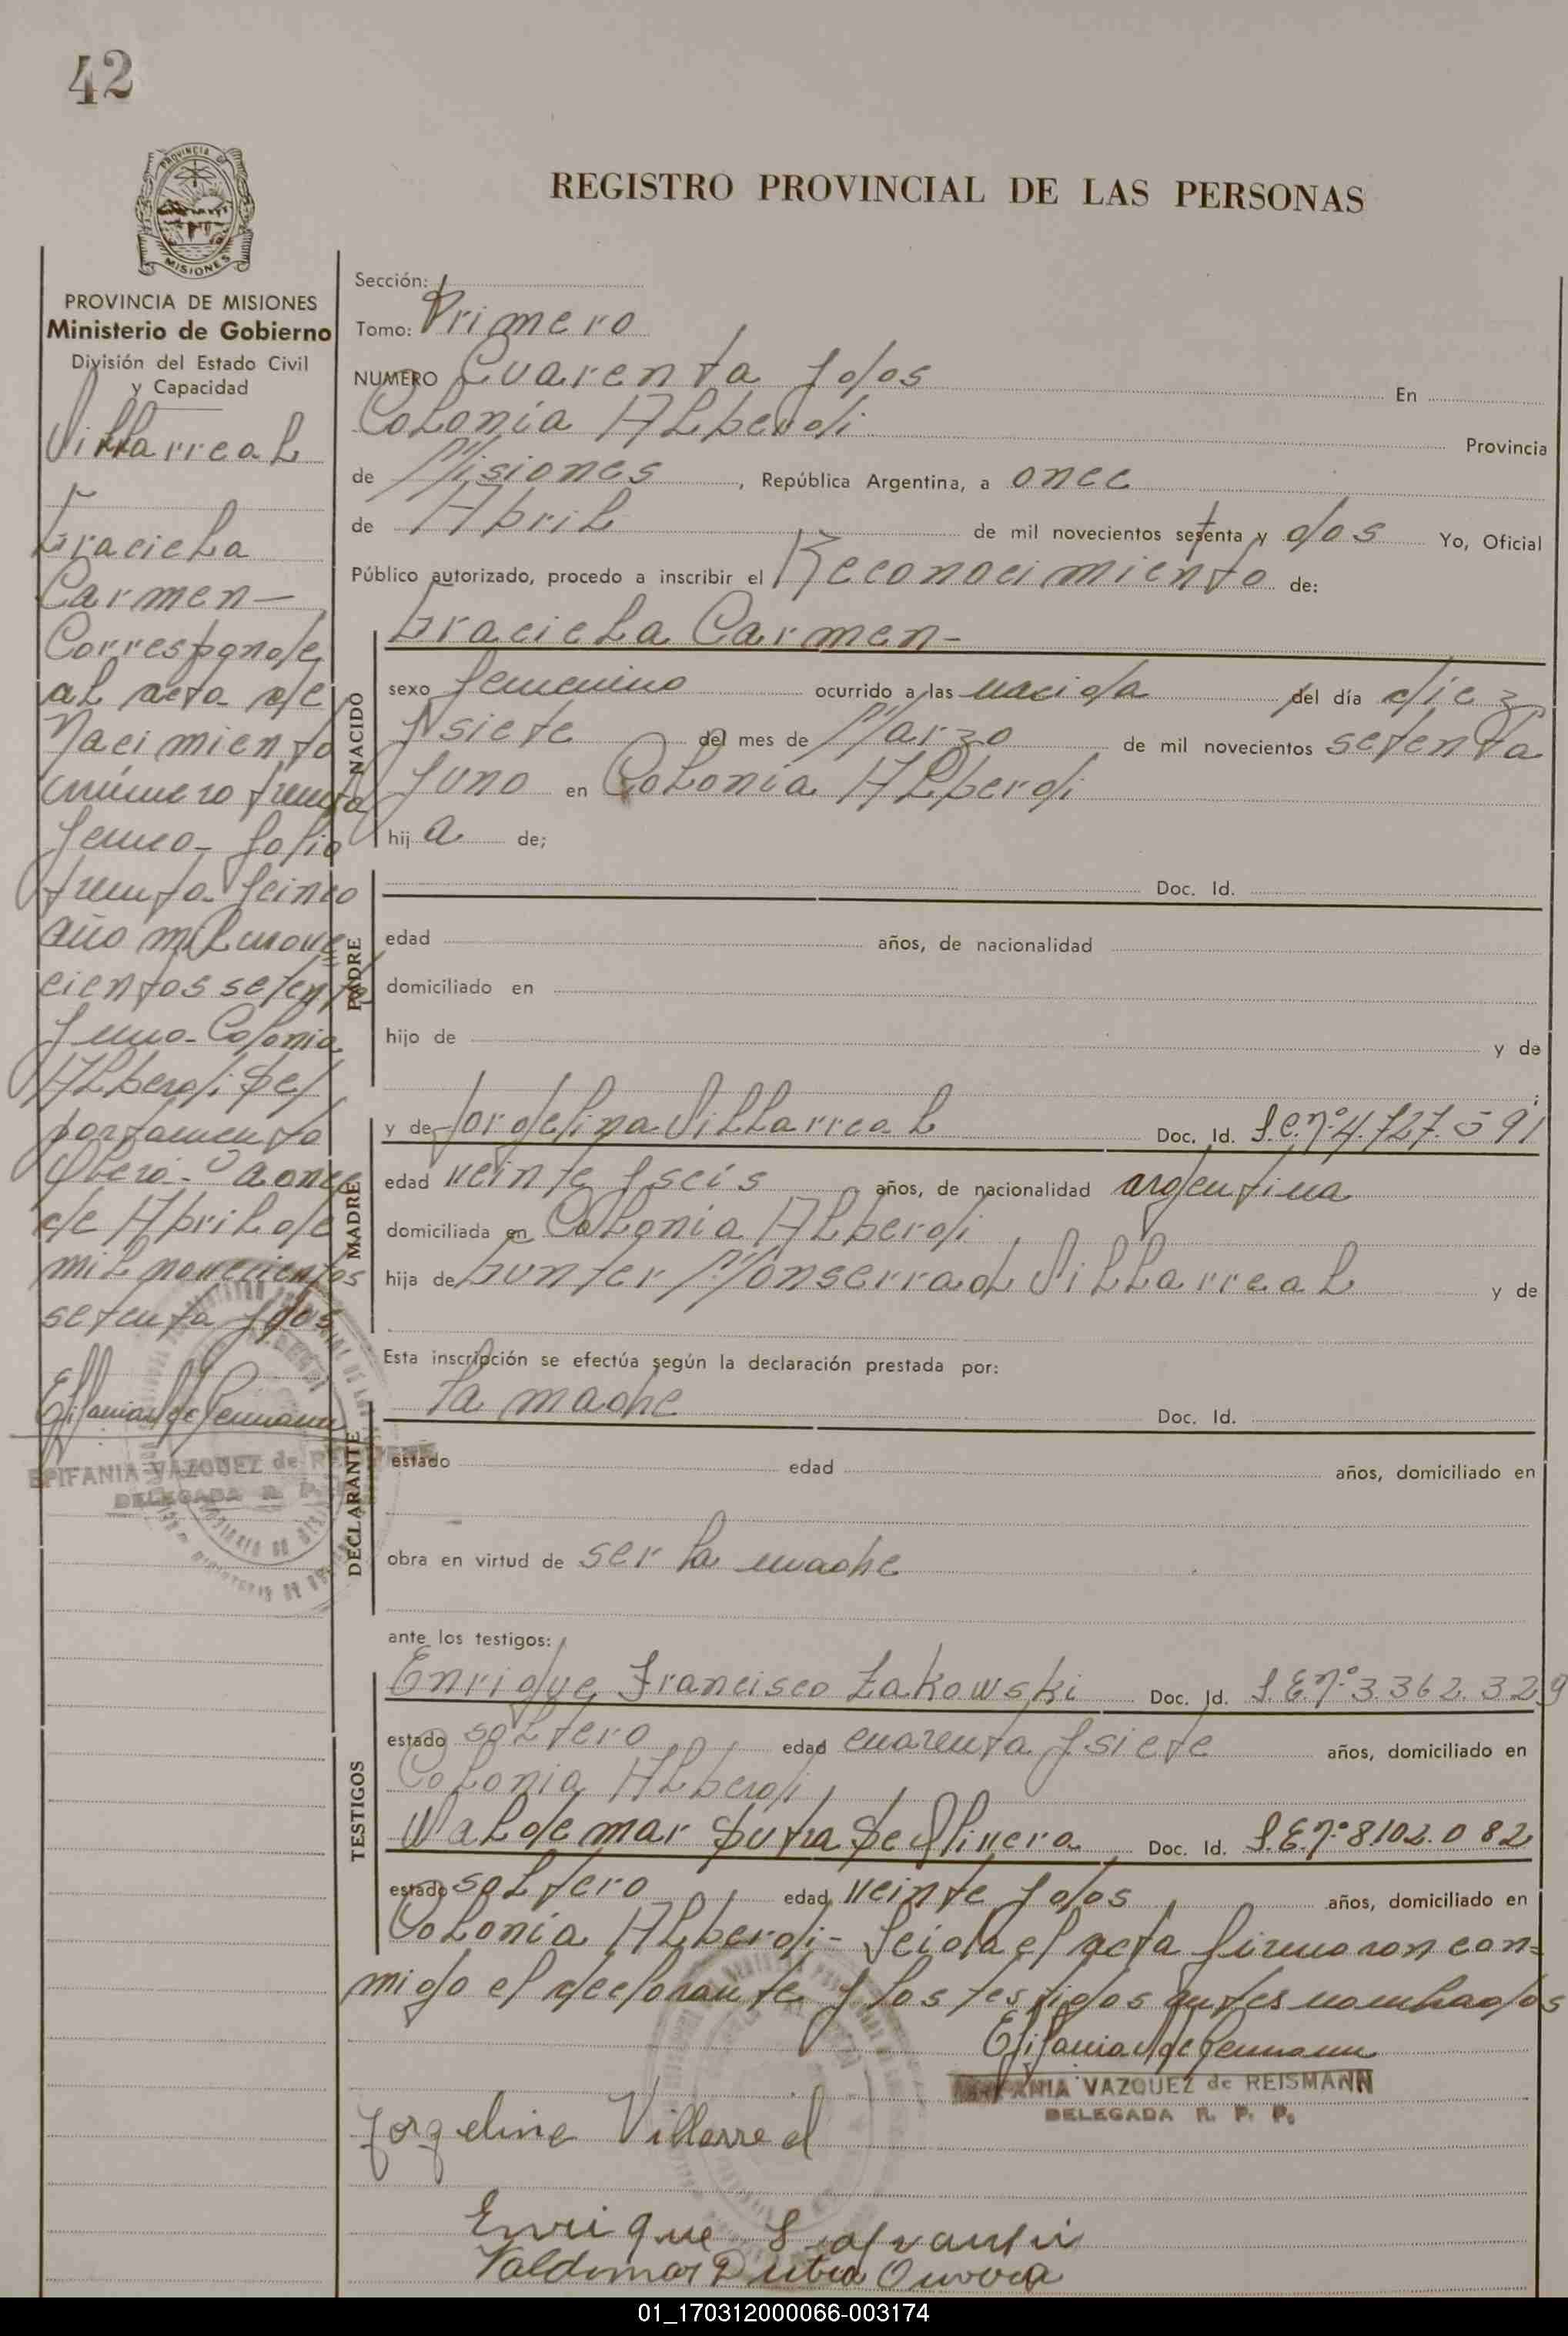 42
REGISTRO PROVINCIAL DE LAS PERSONAS
PROVINCIA DE MISIONES
Ministerio de Gobierno
División del Estado Civil
y Capacidad
Villarreal
Graciela
Carmen-
Corresponde
al acta de
Nacimiento
número treinta
y uno- folio
treinta y cinco
año mil nove
cientos setenta
y uno- Colonia
Alberdi De/
partamento
Oberá- a once
de Abril de
mil novecientos
setenta y dos
EPIFANIA VAZQUEZ de
DELEGADA R. P.
Sección:
Tomo: Primero
NUMERO Cuarenta y dos En
Colonia Alberdi Provincia
de Misiones, República Argentina, a once
de Abril de mil novecientos setenta y dos Yo, Oficial
Público autorizado, procedo a inscribir el Reconocimiento de:
NACIDO
Graciela Carmen-
sexo femenino ocurrido a las nacida del día diez
y siete del mes de Marzo de mil novecientos setenta
y uno en Colonia Alberdi
hij a de;
PADRE
Doc. Id.
edad años, de nacionalidad
domiciliado en
hijo de y de
;
MADRE
y de Jorgelina Villarreal Doc. Id. L.C.nº 4.727.591
edad veinte y seis años, de nacionalidad argentina
domiciliada en Colonia Alberdi
hija de Gunter Monserrad Villarreal y de
Esta inscripción se efectúa según la declaración prestada por:
DECLARANTE
la madre Doc. Id.
estado edad años, domiciliado en
obra en virtud de ser la madre
ante los testigos:
TESTIGOS
Enrique Francisco Zakowski Doc. Id. L.E.nº 3.362.329
estado soltero edad cuarenta y siete años, domiciliado en
Colonia Alberdi
Waldemar Dutra De Olivera Doc. Id. L.E.nº 8102.082
estado soltero edad veinte y dos años, domiciliado en
Colonia Alberdi- Leida el acta firmaron con=
migo el declarante y los testigos antes nombrados
VAZQUEZ de REISMANN
DELEGADA R. P. P.
Jorgelina Villarreal
Enrique
Valdemar Dutra
01_170312000066-003174